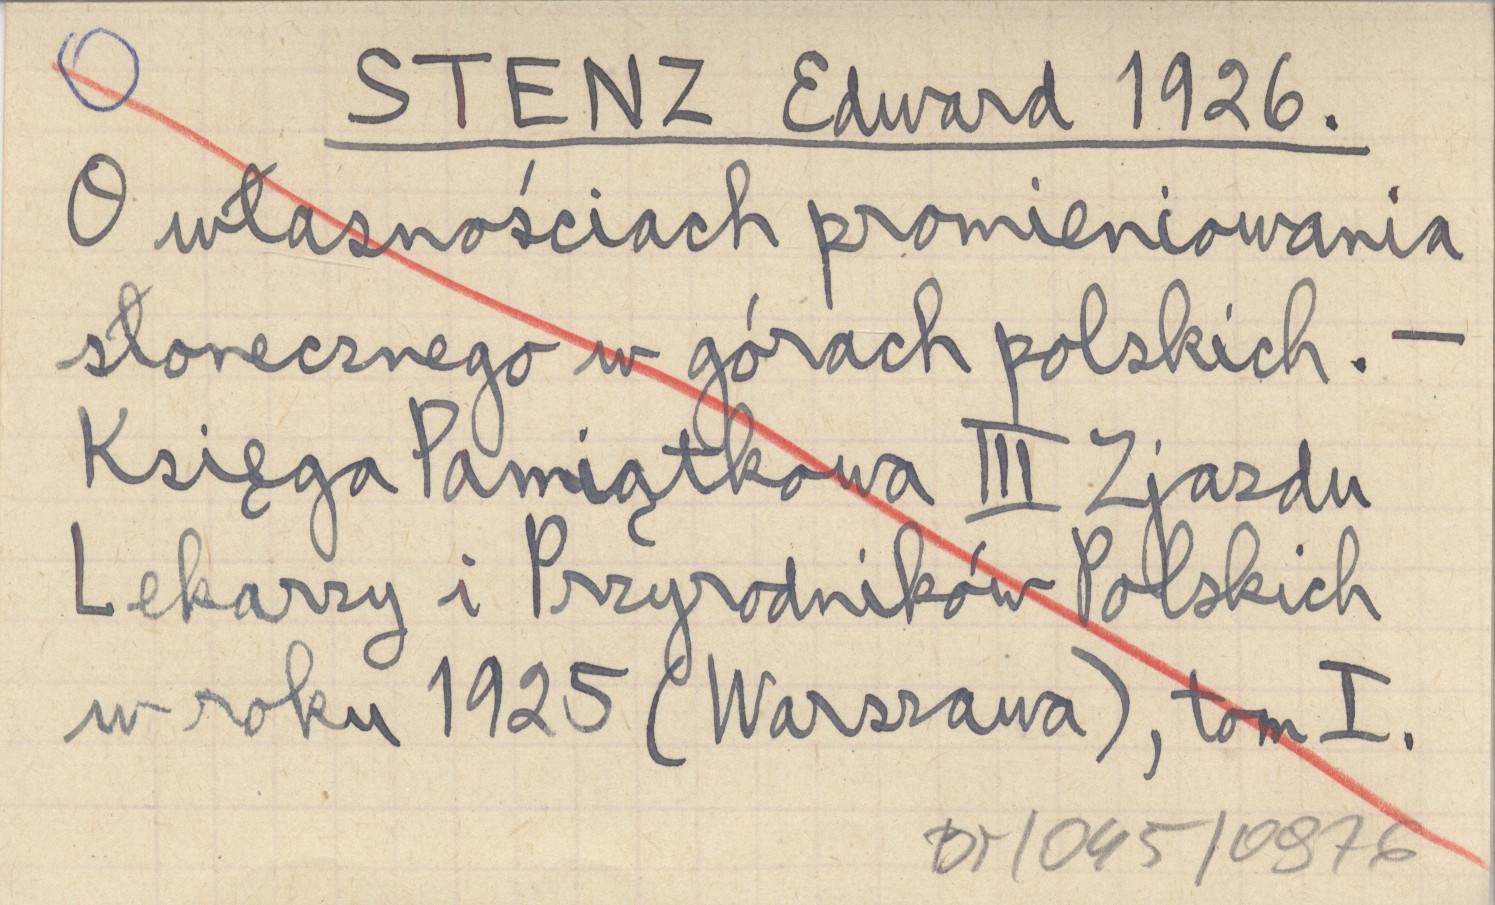 STENZ Edward 1926.
O własnościach promieniowania
słonecznego w górach polskich. —
Księga Pamiątkowa III Zjazdu
Lekarzy i Przyrodników Polskich
w roku 1925 (Warszawa), tom I.
Dr/045/0876